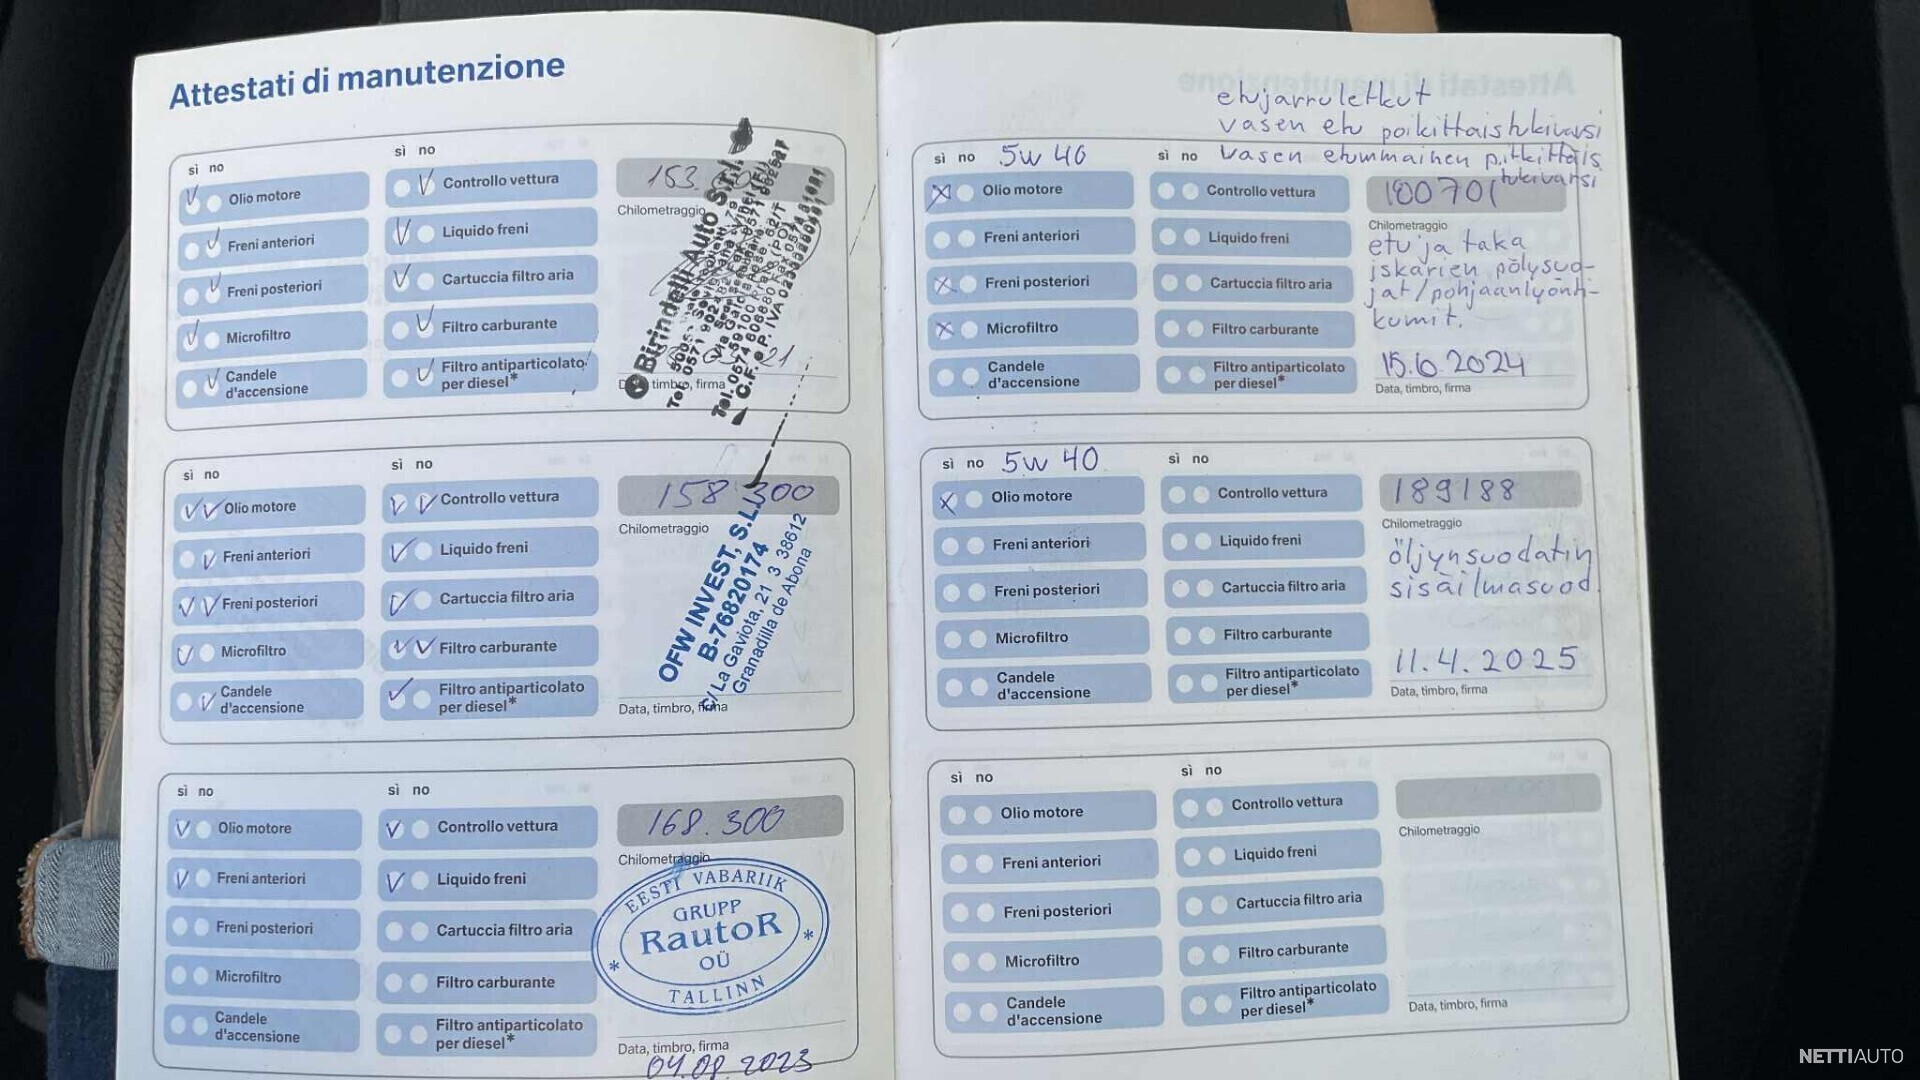 Attestati di manutenzione
sì no
sì no
Olio motore
Controllo vettura
Freni anteriori
Liquido freni
Freni posteriori
Cartuccia filtro aria
Microfiltro
Filtro carburante
Candele
d'accensione
Filtro antiparticolato
per diesel*
153.
Chilometraggio
Birindelli Auto S.r.l.
timbro, firma
sì no
sì no
Olio motore
Controllo vettura
Freni anteriori
Liquido freni
Freni posteriori
Cartuccia filtro aria
Microfiltro
Filtro carburante
Candele
d'accensione
Filtro antiparticolato
per diesel*
158.300
Chilometraggio
OFW INVEST, S.L.
B-76820174
c/ La Gaviota, 21 3 38612
Granadilla de Abona
Data, timbro, firma
sì no
sì no
Olio motore
Controllo vettura
Freni anteriori
Liquido freni
Freni posteriori
Cartuccia filtro aria
Microfiltro
Filtro carburante
Candele
d'accensione
Filtro antiparticolato
per diesel*
168.300
Chilometraggio
EESTI VABARIIK
GRUPP
RautoR
OÜ
* TALLINN *
Data, timbro, firma
04.08.2023
etujarruletkut
vasen etu poikittaistukivarsi
vasen etummainen pitkittäis
tukivarsi
sì no
5w 40
sì no
Olio motore
Controllo vettura
Freni anteriori
Liquido freni
Freni posteriori
Cartuccia filtro aria
Microfiltro
Filtro carburante
Candele
d'accensione
Filtro antiparticolato
per diesel*
180701
Chilometraggio
etu ja taka
iskarien pölysuo-
jat/pohjaanlyönti-
kumit.
15.6.2024
Data, timbro, firma
sì no
5w 40
sì no
Olio motore
Controllo vettura
Freni anteriori
Liquido freni
Freni posteriori
Cartuccia filtro aria
Microfiltro
Filtro carburante
Candele
d'accensione
Filtro antiparticolato
per diesel*
189188
Chilometraggio
öljynsuodatin
sisäilmasuod.
11.4.2025
Data, timbro, firma
sì no
sì no
Olio motore
Controllo vettura
Freni anteriori
Liquido freni
Freni posteriori
Cartuccia filtro aria
Microfiltro
Filtro carburante
Candele
d'accensione
Filtro antiparticolato
per diesel*
Chilometraggio
Data, timbro, firma
NETTIAUTO